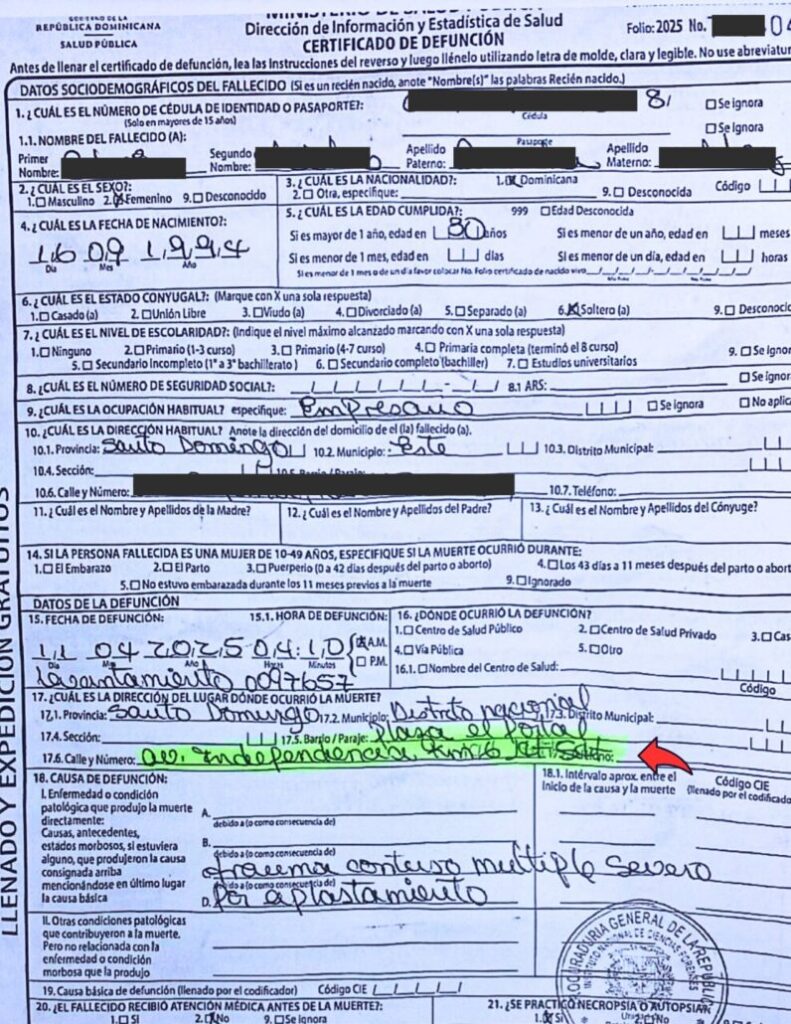 REPÚBLICA DOMINICANA
SALUD PÚBLICA
Dirección de Información y Estadística de Salud
CERTIFICADO DE DEFUNCIÓN
Folio: 2025 No.
Antes de llenar el certificado de defunción, lea las Instrucciones del reverso y luego llénelo utilizando letra de molde, clara y legible. No use abreviatur
DATOS SOCIODEMOGRÁFICOS DEL FALLECIDO (Si es un recién nacido, anote "Nombre(s)" las palabras Recién nacido.)
1. ¿CUÁL ES EL NÚMERO DE CÉDULA DE IDENTIDAD O PASAPORTE?: 8 Se ignora
(Solo en mayores de 15 años) Cédula
1.1. NOMBRE DEL FALLECIDO (A): Pasaporte Se ignora
Primer Nombre: Segundo Nombre: Apellido Paterno: Apellido Materno:
2. ¿CUÁL ES EL SEXO?: 1. Masculino 2. X Femenino 9. Desconocido
3. ¿CUÁL ES LA NACIONALIDAD?: 1. X Dominicana
2. Otra, especifique: 9. Desconocida Código
4. ¿CUÁL ES LA FECHA DE NACIMIENTO?:
16 09 1994
Día Mes Año
5. ¿CUÁL ES LA EDAD CUMPLIDA?: 999 Edad Desconocida
Si es mayor de 1 año, edad en 30 años Si es menor de un año, edad en meses
Si es menor de 1 mes, edad en días Si es menor de un día, edad en horas
Si es menor 1 mes o de un día favor colocar No. Folio certificado de nacido vivo
6. ¿CUÁL ES EL ESTADO CONYUGAL?: (Marque con X una sola respuesta)
1. Casado (a) 2. Unión Libre 3. Viudo (a) 4. Divorciado (a) 5. Separado (a) 6. X Soltero (a) 9. Desconoci
7. ¿CUÁL ES EL NIVEL DE ESCOLARIDAD?: (Indique el nivel máximo alcanzado marcando con X una sola respuesta)
1. Ninguno 2. Primario (1-3 curso) 3. Primario (4-7 curso) 4. Primaria completa (terminó el 8 curso) 9. Se ignor
5. Secundario Incompleto (1° a 3° bachillerato) 6. Secundario completo (bachiller) 7. Estudios universitarios
8. ¿CUÁL ES EL NÚMERO DE SEGURIDAD SOCIAL?: 8.1 ARS: Se ignor
9. ¿CUÁL ES LA OCUPACIÓN HABITUAL? especifique: Empresario Se ignora No aplica
10. ¿CUÁL ES LA DIRECCIÓN HABITUAL? Anote la dirección del domicilio de el (la) fallecido (a).
10.1. Provincia: Santo Domingo 10.2. Municipio: Este 10.3. Distrito Municipal:
10.4. Sección: 10.5. Barrio / Paraje:
10.6. Calle y Número: 10.7. Teléfono:
11. ¿Cuál es el Nombre y Apellidos de la Madre? 12. ¿Cuál es el Nombre y Apellidos del Padre? 13. ¿Cuál es el Nombre y Apellidos del Cónyuge?
14. SI LA PERSONA FALLECIDA ES UNA MUJER DE 10-49 AÑOS, ESPECIFIQUE SI LA MUERTE OCURRIÓ DURANTE:
1. El Embarazo 2. El Parto 3. Puerperio (0 a 42 días después del parto o aborto) 4. Los 43 días a 11 meses después del parto o abort
5. No estuvo embarazada durante los 11 meses previos a la muerte 9. Ignorado
DATOS DE LA DEFUNCIÓN
15. FECHA DE DEFUNCIÓN: 15.1. HORA DE DEFUNCIÓN: 16. ¿DÓNDE OCURRIÓ LA DEFUNCIÓN?
11 04 2025 04:10 A.M.
Día Mes Año Horas Minutos P.M.
1. Centro de Salud Público 2. Centro de Salud Privado 3. Cas
4. Vía Pública 5. Otro
16.1. Nombre del Centro de Salud:
Código
levantamiento 0097657
17. ¿CUÁL ES LA DIRECCIÓN DEL LUGAR DÓNDE OCURRIÓ LA MUERTE?
17.1. Provincia: Santo Domingo 17.2. Municipio: Distrito nacional 17.3. Distrito Municipal:
17.4. Sección: 17.5. Barrio / Paraje: plaza el Portal
17.6. Calle y Número: av. Independencia
18. CAUSA DE DEFUNCIÓN:
18.1. Intérvalo aprox. entre el Inicio de la causa y la muerte
Código CIE (llenado por el codificado
I. Enfermedad o condición patológica que produjo la muerte directamente:
Causas, antecedentes, estados morbosos, si estuviera alguno, que produjeron la causa consignada arriba mencionándose en último lugar la causa básica
A.
debido a (o como consecuencia de)
B.
debido a (o como consecuencia de)
trauma contuso multiple severo
debido a (o como consecuencia de)
D. por aplastamiento
II. Otras condiciones patológicas que contribuyeron a la muerte. Pero no relacionada con la enfermedad o condición morbosa que la produjo
19. Causa básica de defunción (llenado por el codificador) Código CIE
20. ¿EL FALLECIDO RECIBIÓ ATENCIÓN MÉDICA ANTES DE LA MUERTE?: 21. ¿SE PRACTICÓ NECROPSIA O AUTOPSIA
1. SI 2. X No 9. Se ignora 1. X Sí 2. No
LLENADO Y EXPEDICIÓN GRATUITOS
PROCURADURIA GENERAL DE LA REPUBLICA
INSTITUTO NACIONAL DE CIENCIAS FORENSES